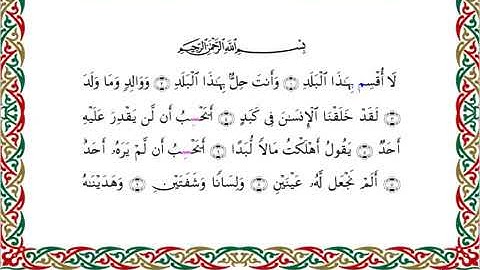 بِسْمِ ٱللَّهِ ٱلرَّحْمَٰنِ ٱلرَّحِيمِ
لَا أُقْسِمُ بِهَٰذَا ٱلْبَلَدِ ۝ وَأَنتَ حِلٌّۢ بِهَٰذَا ٱلْبَلَدِ ۝ وَوَالِدٍ وَمَا وَلَدَ
۝ لَقَدْ خَلَقْنَا ٱلْإِنسَٰنَ فِى كَبَدٍ ۝ أَيَحْسِبُ أَن لَّن يَقْدِرَ عَلَيْهِ
أَحَدٌ ۝ يَقُولُ أَهْلَكْتُ مَالًا لُّبَدًا ۝ أَيَحْسِبُ أَن لَّمْ يَرَهُۥ أَحَدٌ
۝ أَلَمْ نَجْعَل لَّهُۥ عَيْنَيْنِ ۝ وَلِسَانًا وَشَفَتَيْنِ ۝ وَهَدَيْنَٰهُ